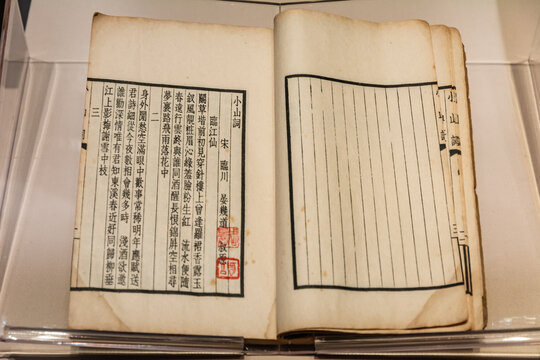 小山詞
宋 臨川 晏幾道 叔原
臨江仙
鬭草堦前初見穿針樓上曾逢羅裙香露玉
釵風靚粧眉沁綠羞臉粉生紅 流水便隨
春遠行雲終與誰同酒醒長恨錦屏空相尋
夢裏路飛雨落花中
二
身外閒愁空滿眼中歡事常稀明年應賦送
君詩細從今夜數相會幾多時 淺酒欲邀
誰勸深情唯有君知東溪春近好同歸柳垂
江上影梅謝雪中枝
三
小山詞